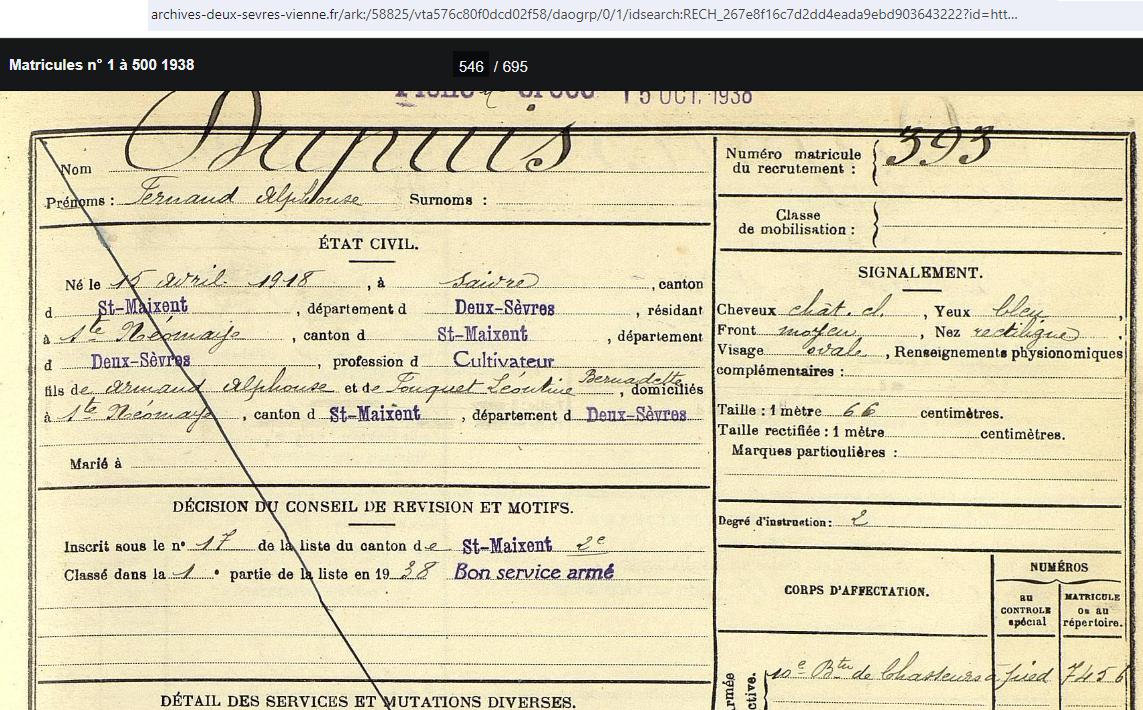 archives-deux-sevres-vienne.fr/ark:/58825/vta576c80f0dcd02f58/daogrp/0/1/idsearch:RECH_267e8f16c7d2dd4eada9ebd903643222?id=htt...
Matricules n° 1 à 500 1938
546 / 695
15 OCT. 1938
Nom Dupuis
Prénoms : Fernand Alphonse Surnoms :
Numéro matricule du recrutement : 393
Classe de mobilisation :
ÉTAT CIVIL.
Né le 15 avril 1918, à Saivre, canton
d St-Maixent, département d Deux-Sèvres, résidant
à Ste Néomaye, canton d St-Maixent, département
d Deux-Sèvres, profession d Cultivateur
fils de Armand Alphonse et de Fouquet Léontine Bernadette, domiciliés
à Ste Néomaye, canton d St-Maixent, département d Deux-Sèvres
Marié à
SIGNALEMENT.
Cheveux chât. cl., Yeux bleu,
Front moyen, Nez rectiligne,
Visage ovale, Renseignements physionomiques
complémentaires :
Taille : 1 mètre 66 centimètres.
Taille rectifiée : 1 mètre centimètres.
Marques particulières :
DÉCISION DU CONSEIL DE REVISION ET MOTIFS.
Inscrit sous le n° 17 de la liste du canton de St-Maixent 2e
Classé dans la 1 e partie de la liste en 1938 Bon service armé
DÉTAIL DES SERVICES ET MUTATIONS DIVERSES.
Degré d'instruction : 2
CORPS D'AFFECTATION.
NUMÉROS
au CONTROLE spécial
MATRICULE ou au répertoire.
Armée active.
10e Bton de Chasseurs à pied 7456